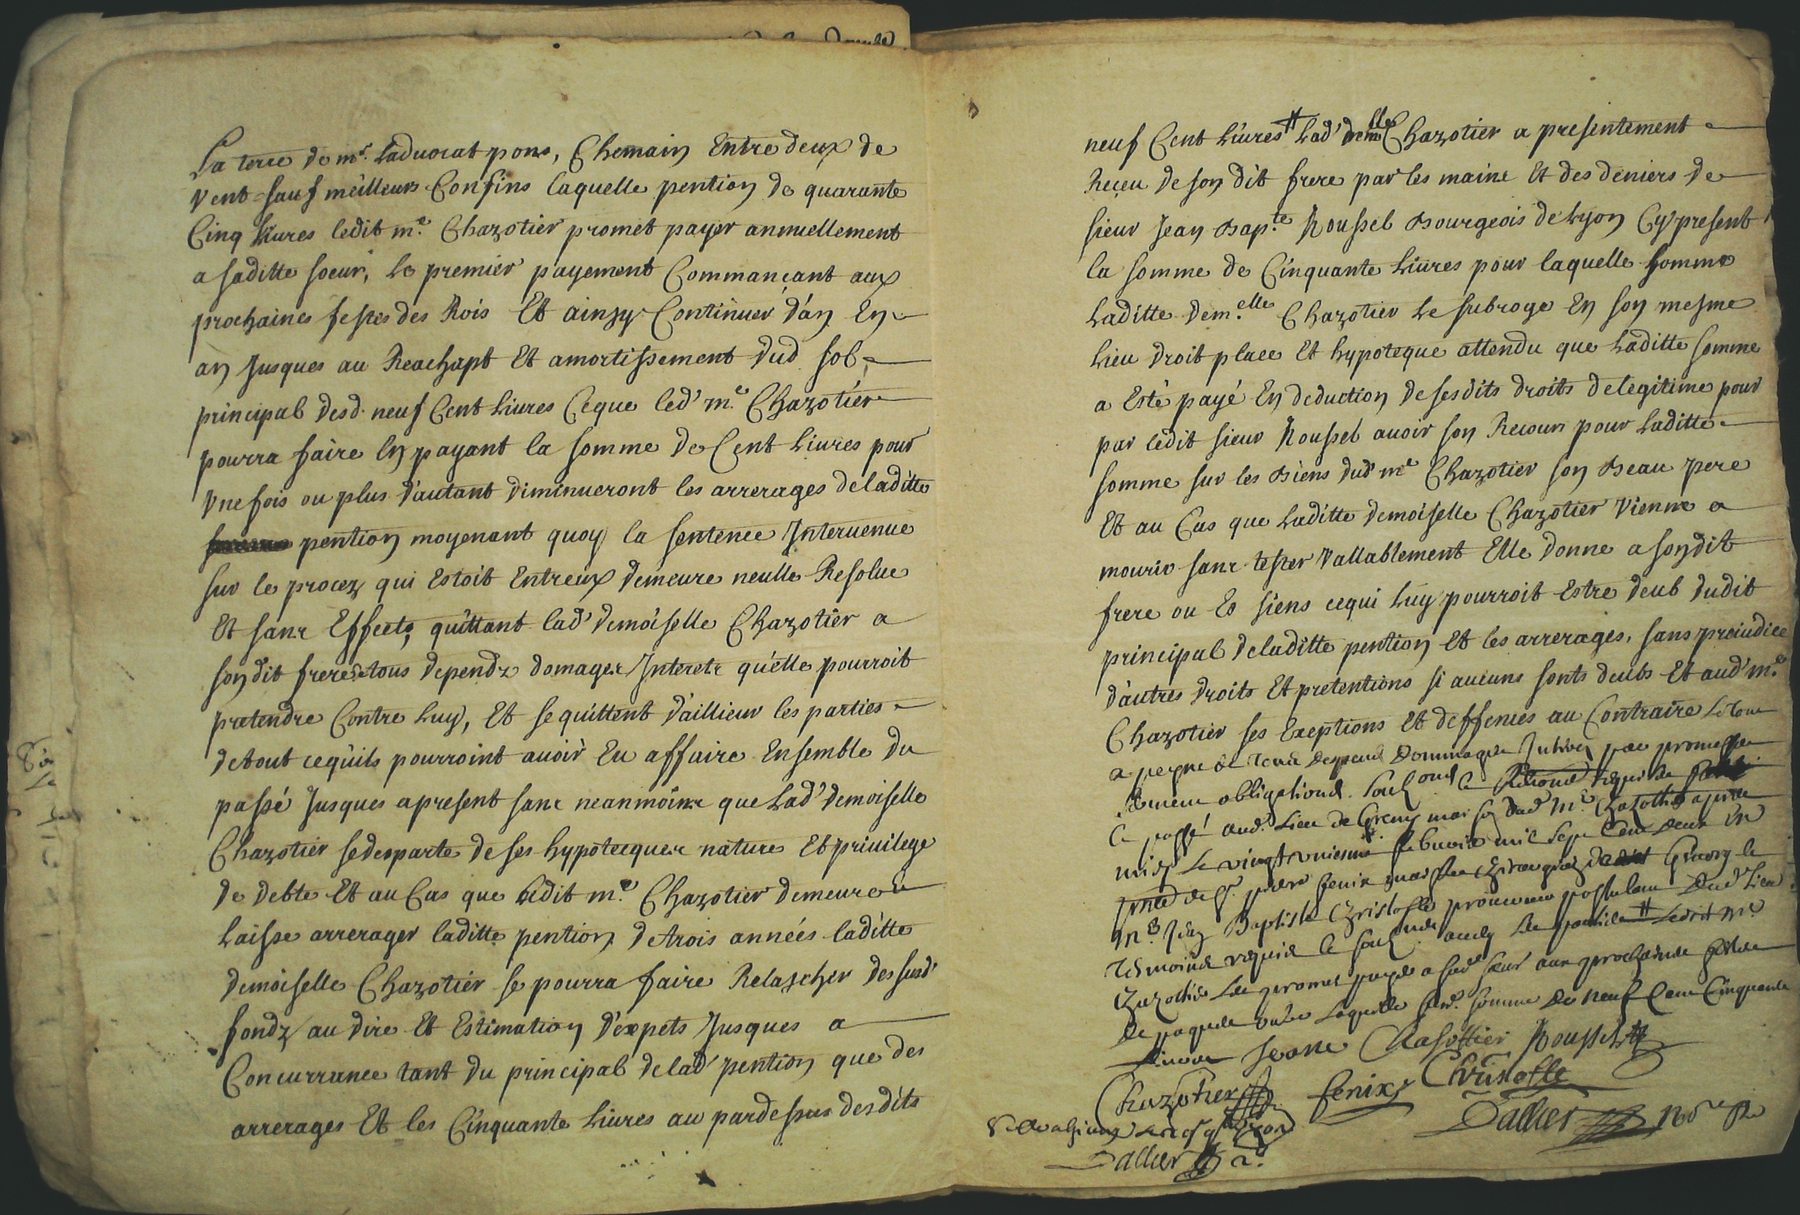 La terre de mr. Laduocat pons, Chemain Entre deux de
Vent sauf meilleurs Confins laquelle pention de quarante
Cinq Liures ledit me. Chazotier promet payer annuellement
a saditte soeur, le premier payement Commançant aux
prochaines festes des Rois Et ainsy Continuer d'an En
an Jusques au Reachapt Et amortissement dud. sol
principal desd. neuf Cent Liures Ceque led' me. Chazotier
pourra faire En payant la somme de Cent Liures pour
Vne fois ou plus d'autant diminueront les arrerages de laditte
pention moyenant quoy la sentence Interuenue
sur le procez qui Estoit Entreux demeure neulle Resolue
Et sans Effects, quittant lad' demoiselle Chazotier a
sondit frere de tous depends domages Interets quelle pourroit
pretendre Contre Luy, Et se quittent d'aillieur les parties
de tout cequils pourroint auoir Eu affaire Ensemble du
passé Jusques apresent sans neanmoins que Lad' demoiselle
Chazotier sedesparte de ses hypotecques natures Et priuilege
de debte Et au Cas que ledit me. Chazotier demeure ou
Laisse arrerager laditte pention de trois années laditte
demoiselle Chazotier se pourra faire Relascher des susd'
fondz au dire Et Estimation d'expets Jusques a
Concurrance tant du principal de lad' pention que des
arrerages Et les Cinquante Liures au pardessus desdits
neuf Cent Liures # Lad' demelle Chazotier a presentement
Reçeu de son dit frere par les mains Et des deniers de
sieur Jean Bapte. Roussel Bourgeois de Lyon Cy present
la somme de Cinquante Liures pour laquelle somme
Laditte demelle Chazotier Le subroge En son mesme
Lieu droit place Et hypoteque attendu que Laditte somme
a Esté payé En deduction de sesdits droits de legitime pour
par ledit sieur Roussel auoir son Recours pour laditte
somme sur les Biens dud' me Chazotier son Beau pere
Et au Cas que Laditte demoiselle Chazotier Vienne a
mourir sans tester Vallablement Elle donne a sondit
frere ou Es siens cequi Luy pourroit Estre deub dudit
principal de laditte pention Et les arrerages, sans preiudice
d'autres droits Et pretentions si aucuns sonts deubs Et aud' me.
Chazotier ses Exeptions Et deffences au Contraire Le tout
a peyne de tous depens dommages Interets par promesse
obligations
passé aud. Lieu de maison dud me Chazotier apres
midy Le vingt vnieme mil sept Cent deux En
pnce de Sr. pierre fenix
Me Jean Baptiste Christofle procureur postulant dud' Lieu
Tesmoins requis le parties # Ledit me
Chazotier promet payer a sad' sœur aux prochaines festes
de paques laquelle somme de neuf Cent Cinquante
Liures Jeane Chasottier Roussel
Chazotier fenix Christofle
Dallier
Dallier